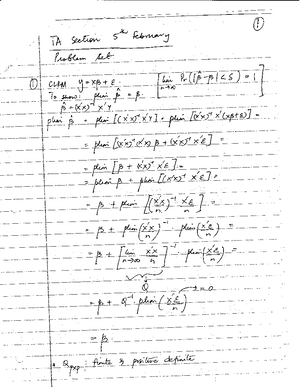 ①
TA Section 5th February
Problem Set
① CLRM y = xβ + ε. [lim n→∞ Pr (|β̂ - β| < δ) = 1]
To show: plim β̂ = β.
β̂ = (x'x)⁻¹ x'y
plim β̂ = plim [(x'x)⁻¹ x'y] = plim [(x'x)⁻¹ x'(xβ+ε)] =
= plim [(x'x)⁻¹ (x'x) β + (x'x)⁻¹ x'ε] =
= plim [β + (x'x)⁻¹ x'ε] =
= plim β + plim [(x'x)⁻¹ x'ε] =
= β + plim [(x'x/n)⁻¹ x'ε/n] =
= β + plim (x'x/n)⁻¹ · plim (x'ε/n) =
= β + [lim n→∞ x'x/n]⁻¹ · plim (x'ε/n) =
Q
= β + Q⁻¹ plim (x'ε/n) → = 0
= β
• Q pxp : finite & positive definite